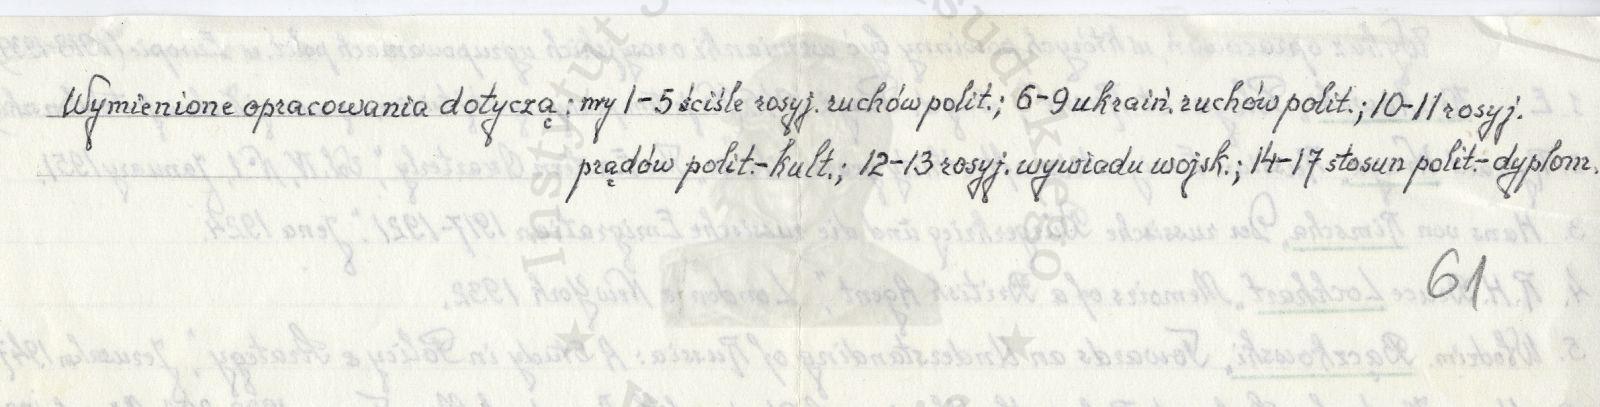 Wymienione opracowania dotyczą: nry 1-5 ściśle rosyj. ruchów polit.; 6-9 ukraiń. ruchów polit.; 10-11 rosyj.
prądów polit.-kult.; 12-13 rosyj. wywiadu wojsk.; 14-17 stosun polit.-dyplom.
61